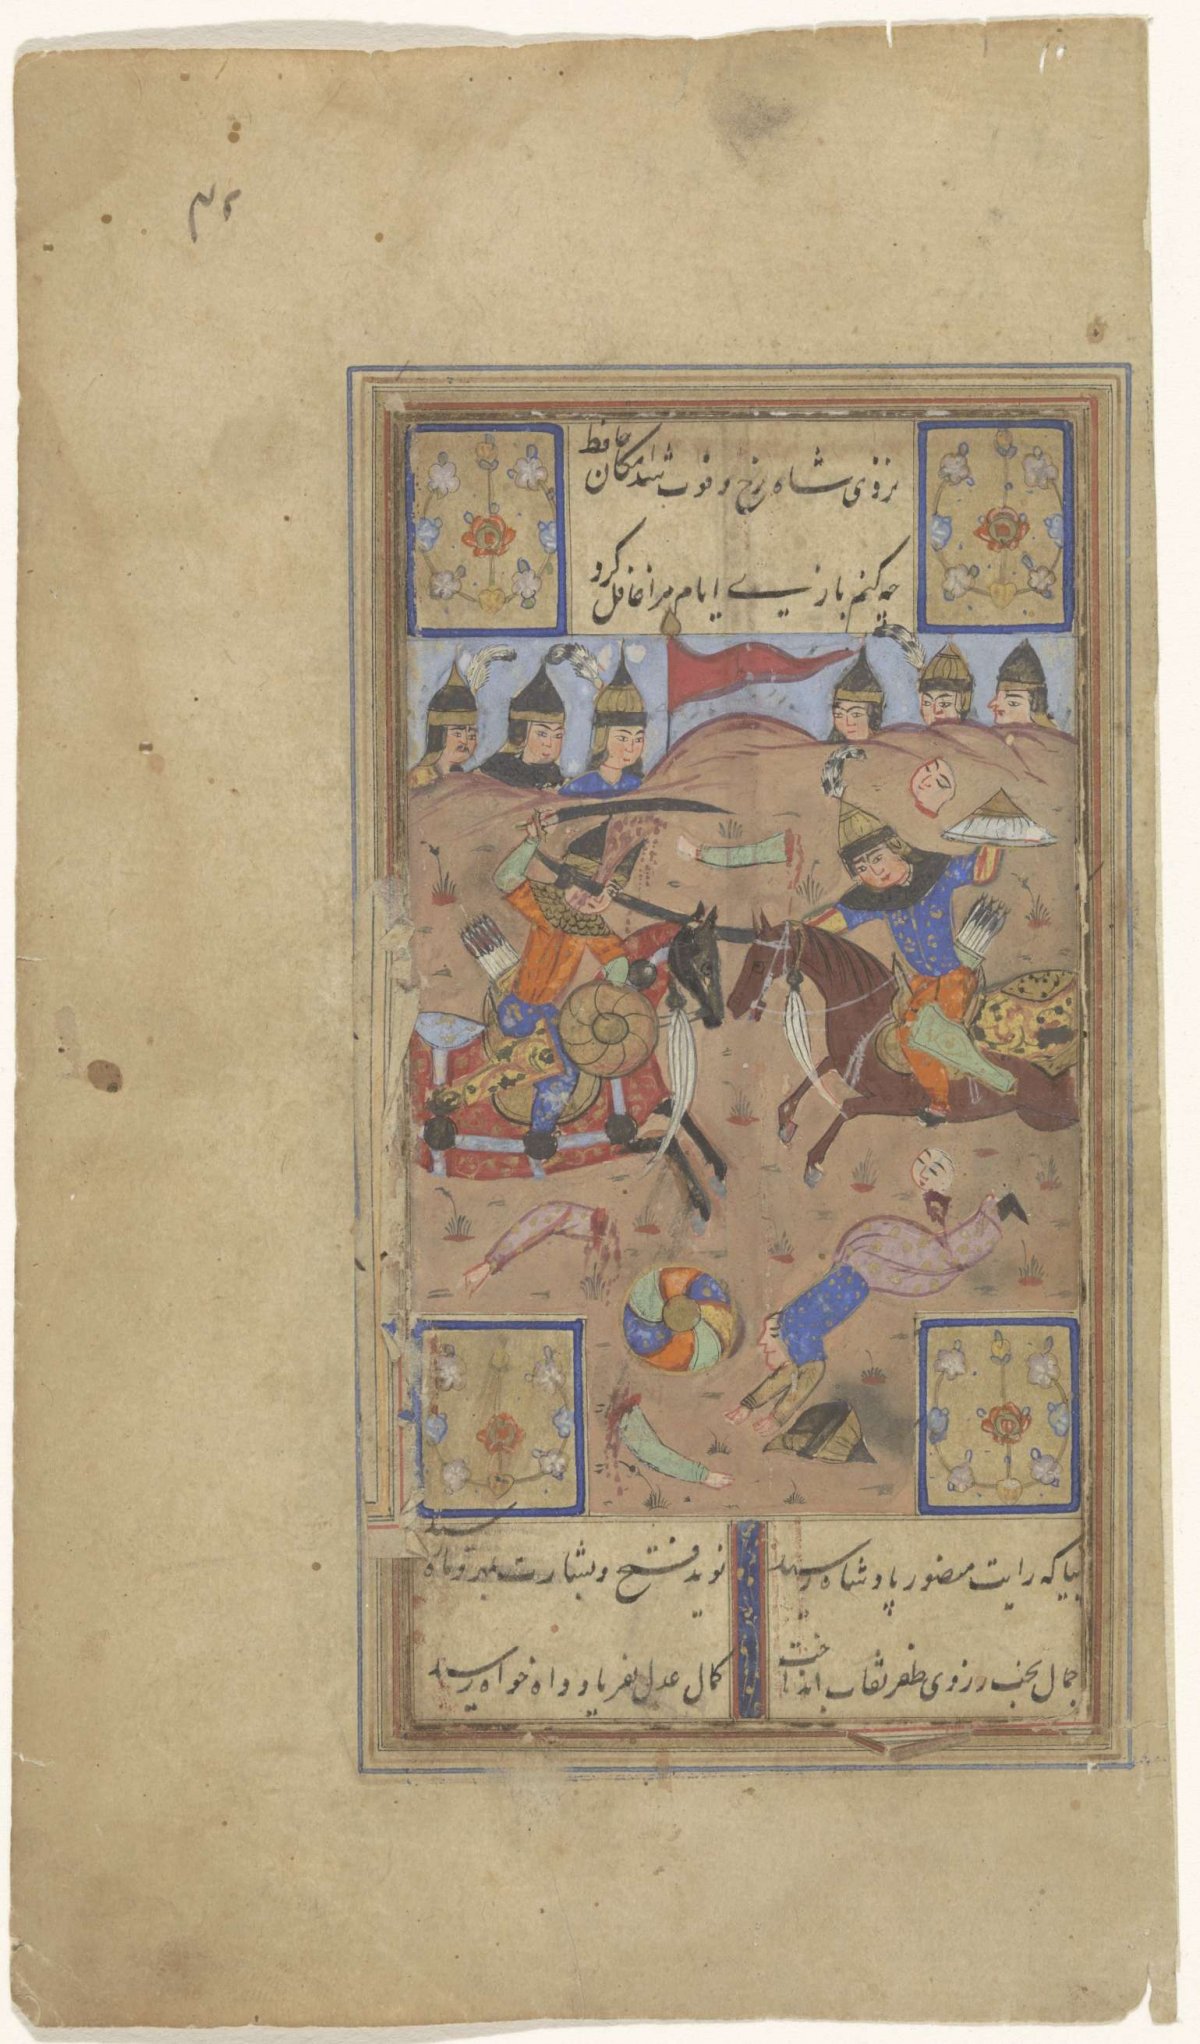 ۴۲
نزدی شاه رخ و فوت شد امکان حافظ
چه کنم بازیی ایام مرا غافل کرد
بیا که رایت منصور پادشاه رسید
نوید فتح و بشارت بمهر و ماه رسید
جمال بخت ز روی ظفر نقاب انداخت
کمال عدل بفریاد دادخواه رسید